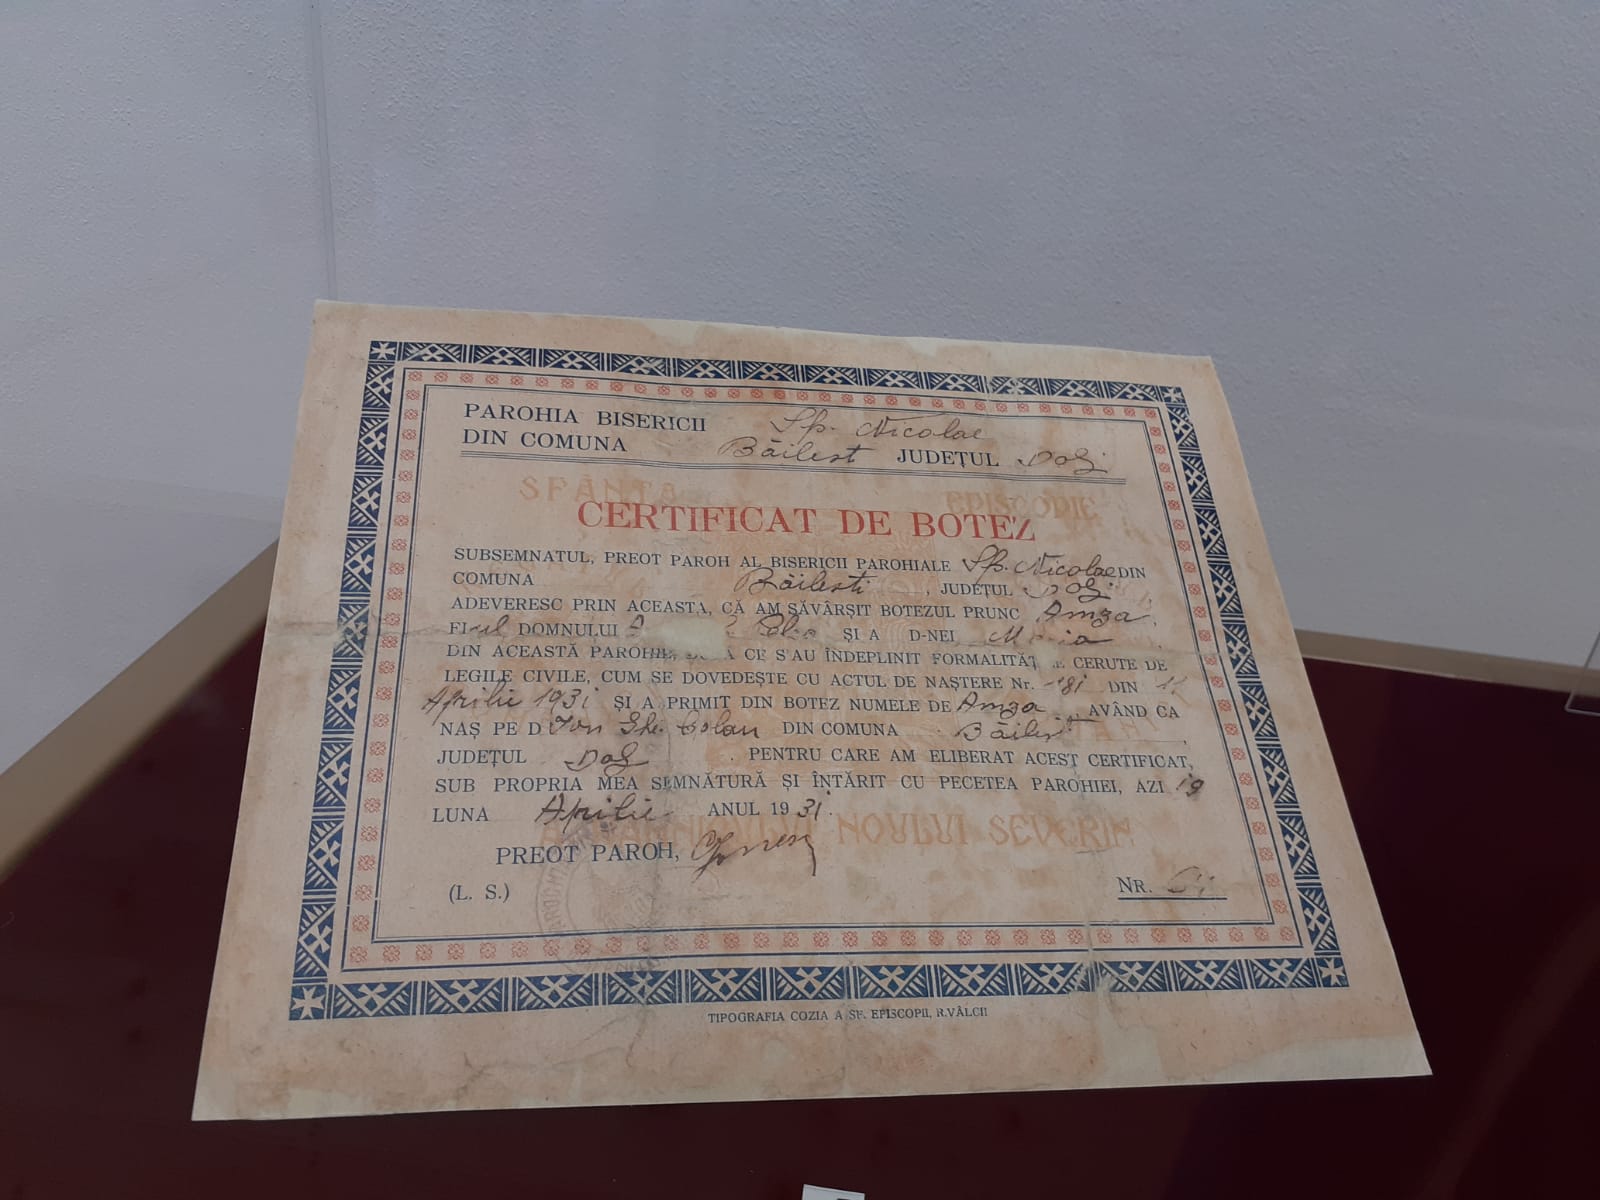 PAROHIA BISERICII Sf. Nicolae
DIN COMUNA Băilest JUDEȚUL Dolj
SFÂNTA EPISCOPIE
CERTIFICAT DE BOTEZ
SUBSEMNATUL, PREOT PAROH AL BISERICII PAROHIALE Sf. Nicolae DIN
COMUNA Băilesti, JUDEȚUL Dolj
ADEVERESC PRIN ACEASTA, CĂ AM SĂVÂRȘIT BOTEZUL PRUNC Amza,
FIul DOMNULUI ȘI A D-NEI
DIN ACEASTĂ PAROHIE, CE S'AU ÎNDEPLINIT CERUTE DE
LEGILE CIVILE, CUM SE DOVEDEȘTE CU ACTUL DE NAȘTERE Nr. DIN
Aprilie 1931 ȘI A PRIMIT DIN BOTEZ NUMELE DE Amza AVÂND CA
NAȘ PE D Ion Ghe. DIN COMUNA
JUDEȚUL Dolj. PENTRU CARE AM ELIBERAT ACEST CERTIFICAT,
SUB PROPRIA MEA SEMNĂTURĂ ȘI ÎNTĂRIT CU PECETEA PAROHIEI, AZI 19
LUNA Aprilie ANUL 1931.
NOULUI SEVERIN
PREOT PAROH,
(L. S.) NR.
TIPOGRAFIA COZIA A SF. EPISCOPII, R.VÂLCII